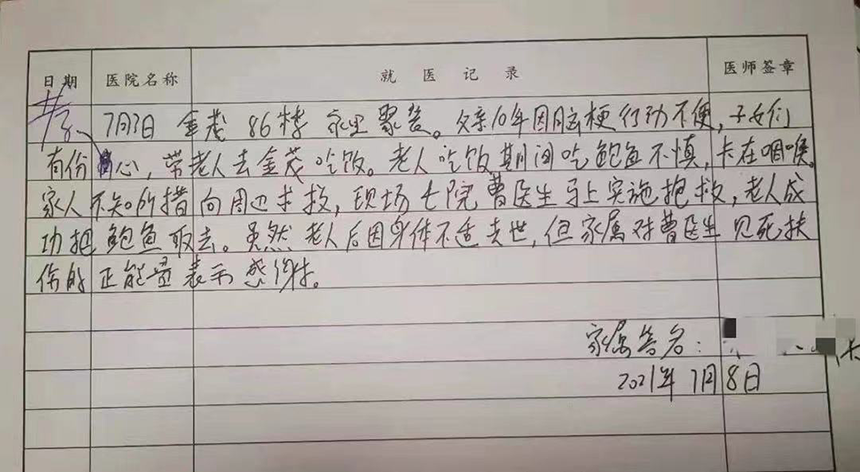 日期 医院名称 就医记录 医师签章
7月3日 金茂 86楼 家里聚餐。父亲10年因脑梗行动不便,子女们
有份心,带老人去金茂吃饭。老人吃饭期间吃鲍鱼不慎,卡在咽喉。
家人不知所措向周边求救,现场七院曹医生马上实施抱救,老人成
功把鲍鱼取去。虽然老人后因身体不适去世,但家属对曹医生见死扶
伤的正能量表示感谢。
家属签名:
2021年7月8日